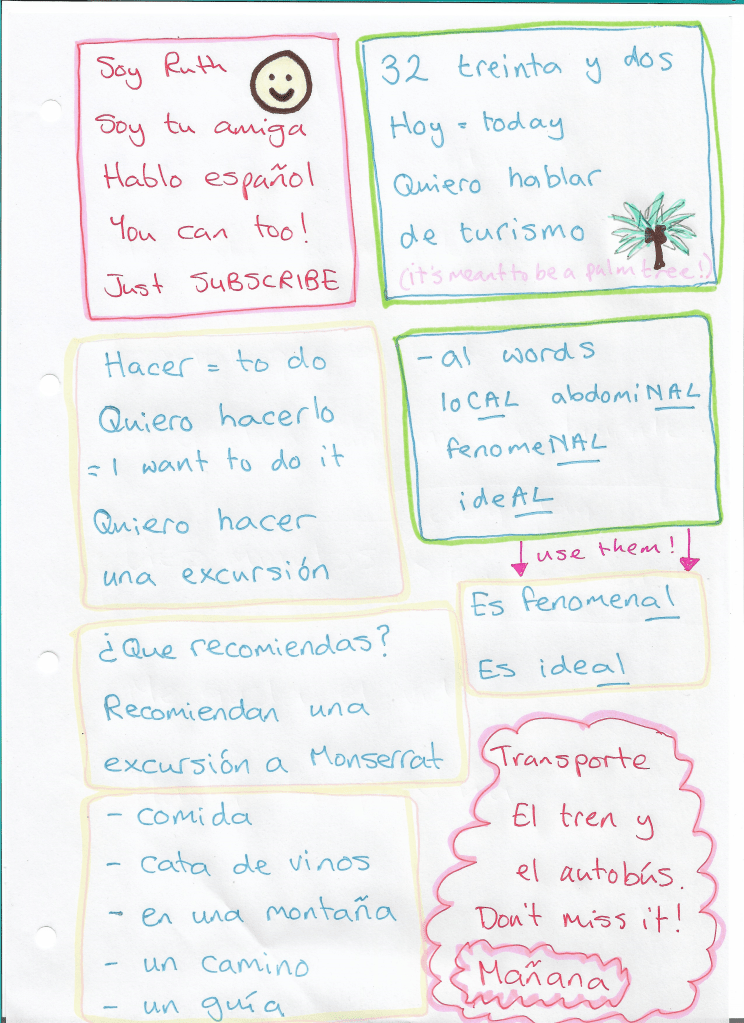 Soy Ruth
Soy tu amiga
Hablo español
You can too!
Just SUBSCRIBE
32 treinta y dos
Hoy = today
Quiero hablar
de turismo
(it's meant to be a palm tree!)
Hacer = to do
Quiero hacerlo
= I want to do it
Quiero hacer
una excursión
- al words
loCAL abdomiNAL
fenomeNAL
ideAL
use them!
Es fenomenal
Es ideal
¿Que recomiendas?
Recomiendan una
excursión a Monserrat
- comida
- cata de vinos
- en una montaña
- un camino
- un guía
Transporte
El tren y
el autobús.
Don't miss it!
Mañana